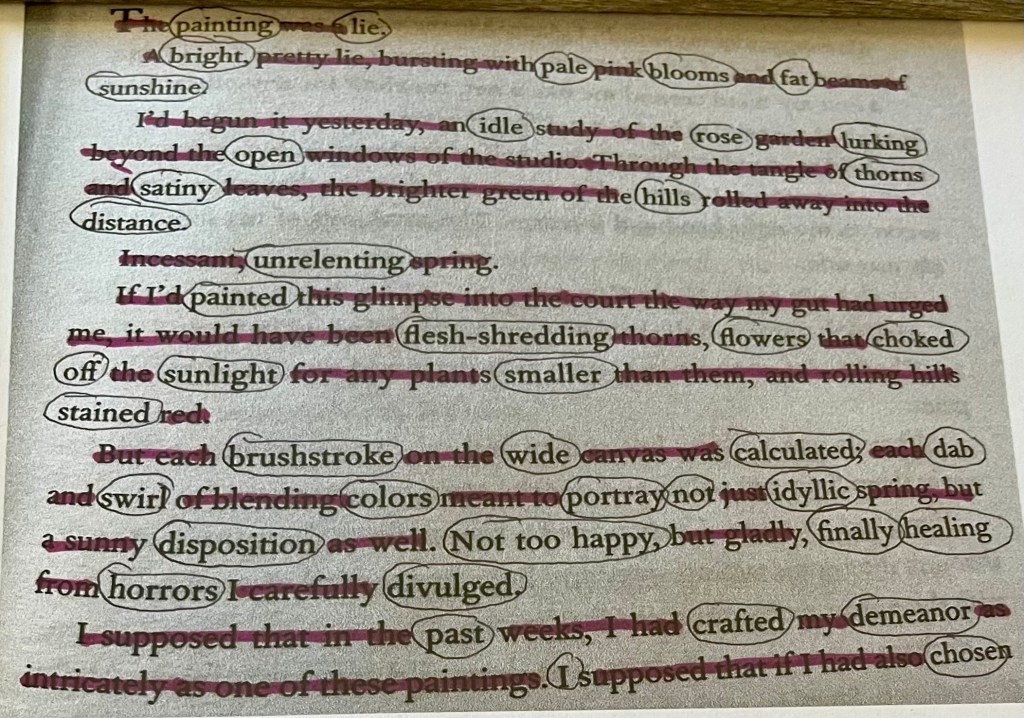 The painting was a lie.
A bright, pretty lie, bursting with pale pink blooms and fat beams of
sunshine.
I'd begun it yesterday, an idle study of the rose garden lurking
beyond the open windows of the studio. Through the tangle of thorns
and satiny leaves, the brighter green of the hills rolled away into the
distance.
Incessant, unrelenting spring.
If I'd painted this glimpse into the court the way my gut had urged
me, it would have been flesh-shredding thorns, flowers that choked
off the sunlight for any plants smaller than them, and rolling hills
stained red.
But each brushstroke on the wide canvas was calculated; each dab
and swirl of blending colors meant to portray not just idyllic spring, but
a sunny disposition as well. Not too happy, but gladly, finally healing
from horrors I carefully divulged.
I supposed that in the past weeks, I had crafted my demeanor as
intricately as one of these paintings. I supposed that if I had also chosen